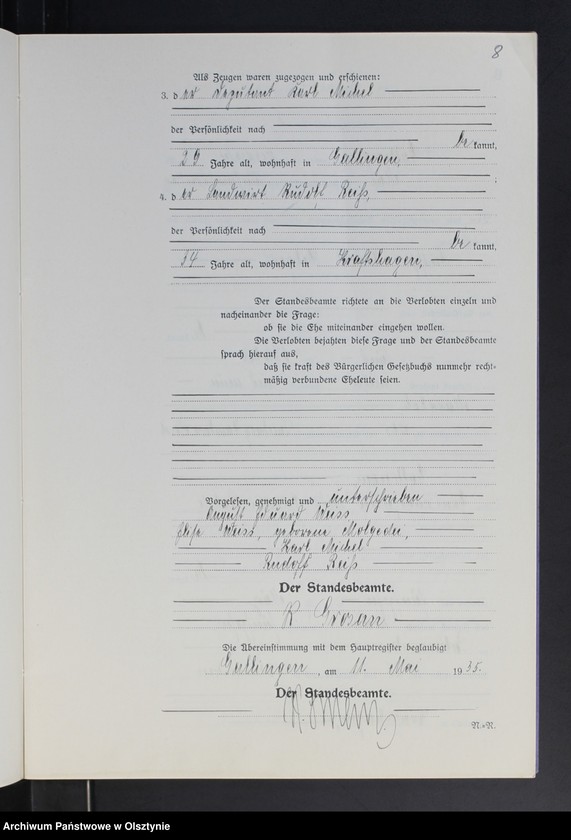 8
Als Zeugen waren zugezogen und erschienen:
3. der Deputant Karl Michel
der Persönlichkeit nach
bekannt,
29 Jahre alt, wohnhaft in Gallingen,
;
4. der Landwirt Rudolf Reiß,
der Persönlichkeit nach
bekannt,
54 Jahre alt, wohnhaft in Kraftshagen,
Der Standesbeamte richtete an die Verlobten einzeln und
nacheinander die Frage:
ob sie die Ehe miteinander eingehen wollen.
Die Verlobten bejahten diese Frage und der Standesbeamte
sprach hierauf aus,
daß sie kraft des Bürgerlichen Gesetzbuchs nunmehr recht-
mäßig verbundene Eheleute seien.
Vorgelesen, genehmigt und unterschrieben
August Eduard Weiss
Weiss, geborene
Karl Michel
Rudolf Reiß
Der Standesbeamte.
R
Die Übereinstimmung mit dem Hauptregister beglaubigt
Gallingen, am 11. Mai 1935.
Der Standesbeamte.
N.-N.
Archiwum Państwowe w Olsztynie